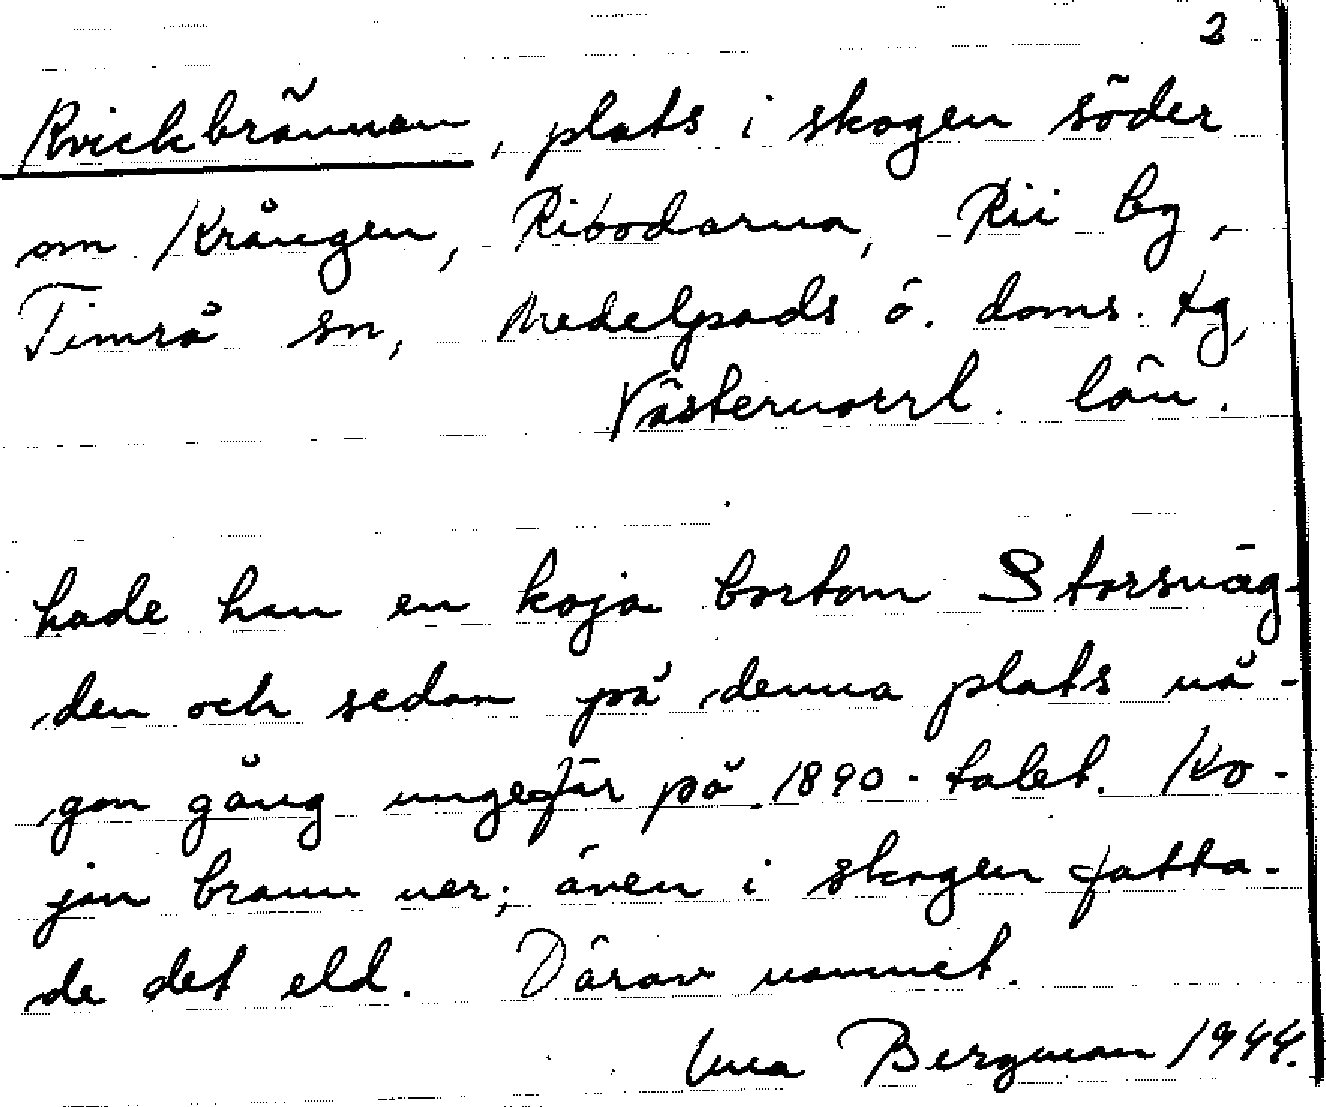 2
Kvickbrännan, plats i skogen söder
om Krången, Ribodarna, Rii by,
Timrå sn, Medelpads ö. doms. tg,
Västernorrl. län.
hade han en koja bortom Storsväg-
den och sedan på denna plats nå-
gon gång ungefär på 1890-talet. Ko-
jan brann ner; även i skogen fatta-
de det eld. Därav namnet.
Bergman 1944.